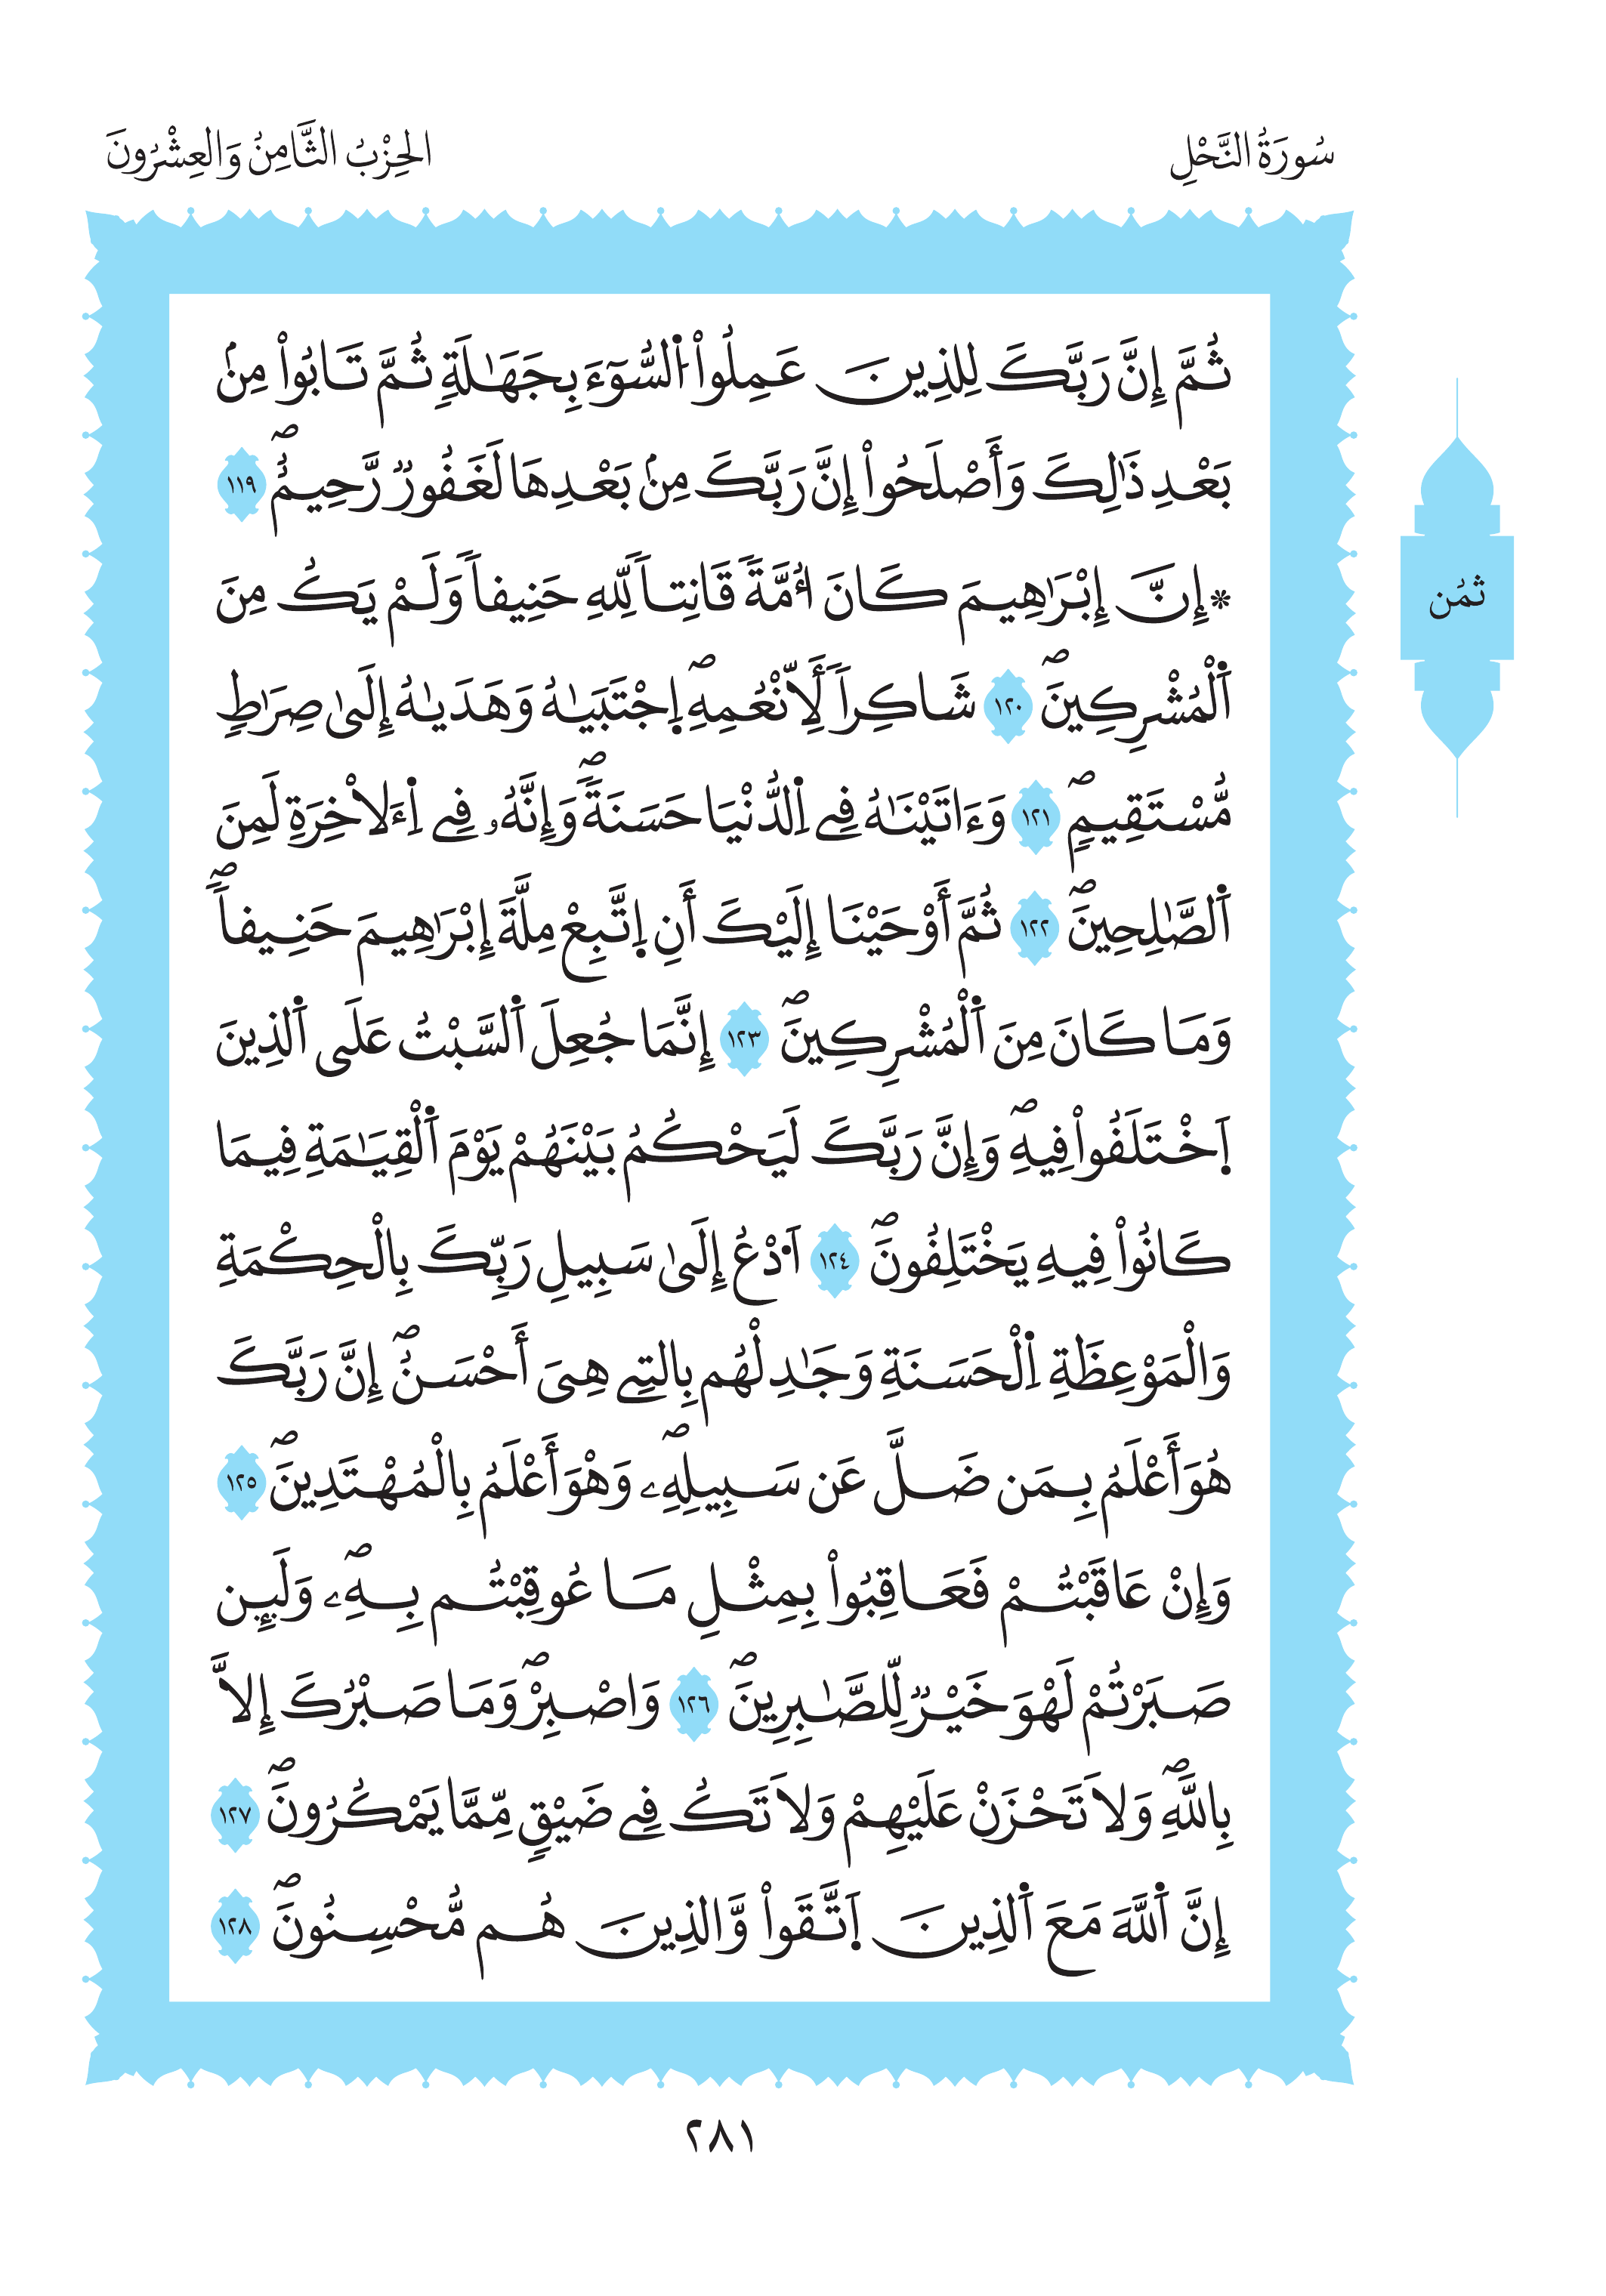 سُورَةُ النَّحْلِ
الحِزْبُ الثَّامِنُ وَالعِشْرُونَ
ثُمَّ إِنَّ رَبَّكَ لِلذِينَ عَمِلُواْ اُ۬لسُّوٓءَ بِجَهَٰلَةٖ ثُمَّ تَابُواْ مِنۢ
بَعْدِ ذَٰلِكَ وَأَصْلَحُواْ إِنَّ رَبَّكَ مِنۢ بَعْدِهَا لَغَفُورٞ رَّحِيمٌۖ ١١٩
* إِنَّ إِبْرَٰهِيمَ كَانَ أُمَّةٗ قَانِتاٗ لِّلهِ حَنِيفاٗ وَلَمْ يَكُ مِنَ
اَ۬لْمُشْرِكِينَۖ ١٢٠ شَاكِراٗ لَّأَنْعُمِهِۖ اِ۪جْتَبَيٰهُ وَهَدَيٰهُ إِلَىٰ صِرَٰطٖ
مُّسْتَقِيمٖۖ ١٢١ وَءَاتَيْنَٰهُ فِے اِ۬لدُّنْيَا حَسَنَةٗۖ وَإِنَّهُۥ فِے اِ۬ءَلَاخِرَةِ لَمِنَ
اَ۬لصَّٰلِحِينَۖ ١٢٢ ثُمَّ أَوْحَيْنَا إِلَيْكَ أَنِ اِ۪تَّبِعْ مِلَّةَ إِبْرَٰهِيمَ حَنِيفاٗۖ
وَمَا كَانَ مِنَ اَ۬لْمُشْرِكِينَۖ ١٢٣ إِنَّمَا جُعِلَ اَ۬لسَّبْتُ عَلَى اَ۬لذِينَ
اَ۪خْتَلَفُواْ فِيهِۖ وَإِنَّ رَبَّكَ لَيَحْكُمُ بَيْنَهُمْ يَوْمَ اَ۬لْقِيَٰمَةِ فِيمَا
كَانُواْ فِيهِ يَخْتَلِفُونَۖ ١٢٤ اَ۟دْعُ إِلَىٰ سَبِيلِ رَبِّكَ بِالْحِكْمَةِ
وَالْمَوْعِظَةِ اِ۬لْحَسَنَةِ وَجَٰدِلْهُم بِالتِے هِيَ أَحْسَنُۖ إِنَّ رَبَّكَ
هُوَ أَعْلَمُ بِمَن ضَلَّ عَن سَبِيلِهِۦۖ وَهْوَ أَعْلَمُ بِالْمُهْتَدِينَۖ ١٢٥
وَإِنْ عَاقَبْتُمْ فَعَاقِبُواْ بِمِثْلِ مَا عُوقِبْتُم بِهِۦۖ وَلَئِن
صَبَرْتُمْ لَهْوَ خَيْرٞ لِّلصَّٰبِرِينَۖ ١٢٦ وَاصْبِرْۖ وَمَا صَبْرُكَ إِلَّا
بِاللَّهِۖ وَلَا تَحْزَنْ عَلَيْهِمْ وَلَا تَكُ فِے ضَيْقٖ مِّمَّا يَمْكُرُونَۖ ١٢٧
إِنَّ اَ۬للَّهَ مَعَ اَ۬لذِينَ اَ۪تَّقَواْ وَّالذِينَ هُم مُّحْسِنُونَۖ ١٢٨
ثمُن
٢٨١